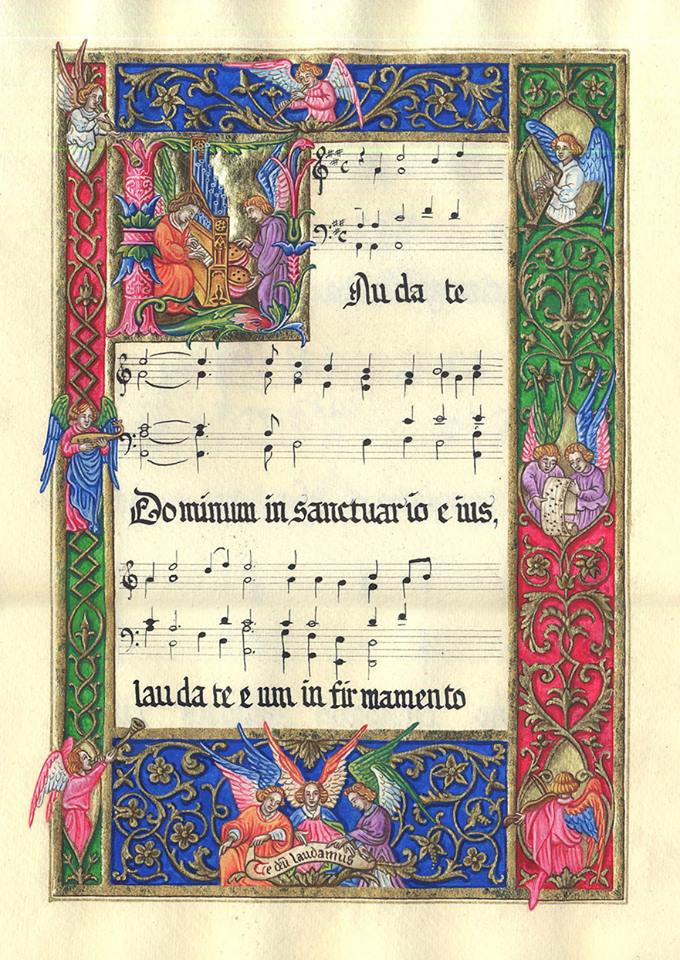 Lau da te
Do minum in sanctuar io e ius,
lau da te e um in fir mamento
Te dm laudamus